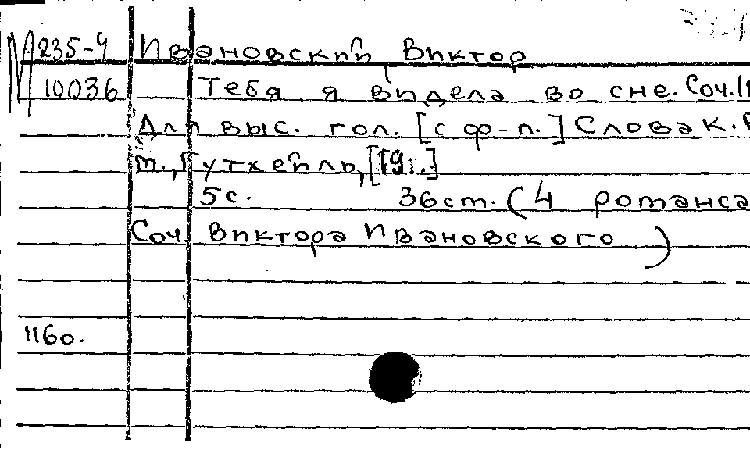 М 235-4 Ивановский Виктор
10036 Тебя я видела во сне. Соч.
Для выс. гол. [с ф-п.] Слова К.
м., Гутхейль, [19..]
5с. 36ст. (4 романса
Соч. Виктора Ивановского)
1160.